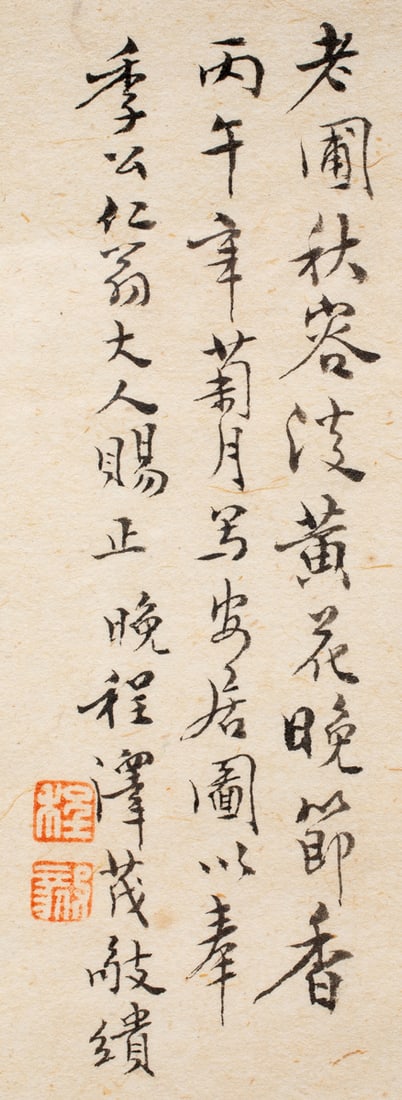 老圃秋容淡黄花晚節香
丙午年菊月写安居圖以奉
季公仁翁大人賜正 晚程澤茂敬繢
程